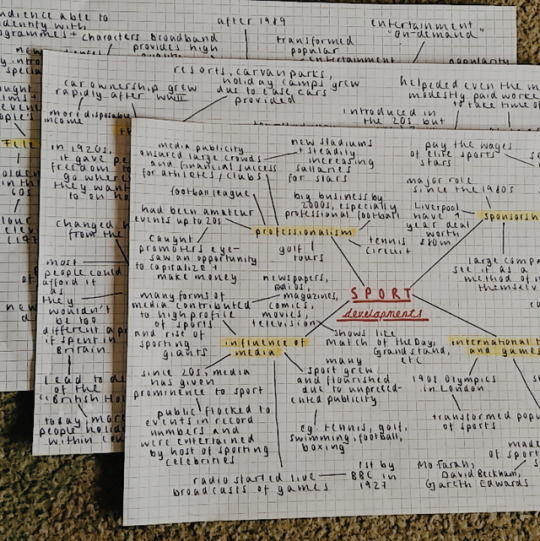 audience able to
identify with
programmes + characters
broadband
provides high
after 1989
transformed
popular
entertainment
entertainment
"on-demand"
popularity
resorts, carvan parks,
holiday camps grew
due to ease cars
provided
car ownership grew
rapidly after WWII
more disposable
income
helpeded even the
modestly paid
to take time
introduced in
the 20s but
in 1920s,
it gave
freedom to
go where
they want
changed
from the
most
people could
afford it
as
they
wouldn't
be too
different
if spent in
Britain
lead to
of the
"British
today, more
people
within
media publicity
ensured large crowds
and financial success
for athletes, clubs
new stadiums
+ steadily
increasing
sallaries
for stars
football league
big business by
2000s, especially
professional football
had been amateur
events up to 20s
professionalism
golf
tours
tennis
circuit
caught
promoters eye-
saw an opportunity
to capitalize +
make money
pay the wages
of elite sports
stars
major role
since the 1980s
Liverpool
have 4
years deal
worth
£80m
sponsorsh
large comp
see it as a
means of
themselv
SPORT
developments
newspapers,
radios,
magazines,
comics,
movies,
television
many forms of
media contributed
to high profile
of sports
and rise of
sporting
giants
influence of
media
shows like
Match of the Day,
Grandstand,
etc
since 20s, media
has given
prominence to sport
many
sport grew
and flourished
due to unpreced-
ented publicity
public flocked to
events in record
numbers and
were entertained
by host of sporting
celebrities
eg. tennis, golf,
swimming, football,
boxing
radio started live
broadcasts of games
1st by
BBC in
1927
international
and games
1908 Olympics
in London
transformed
of sports
Mo Farah,
David Beckham,
Gareth Edwards
made
of spor